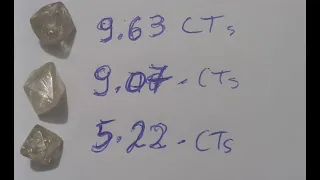 9.63 CTs
9.07. CTs
5.22. CTs